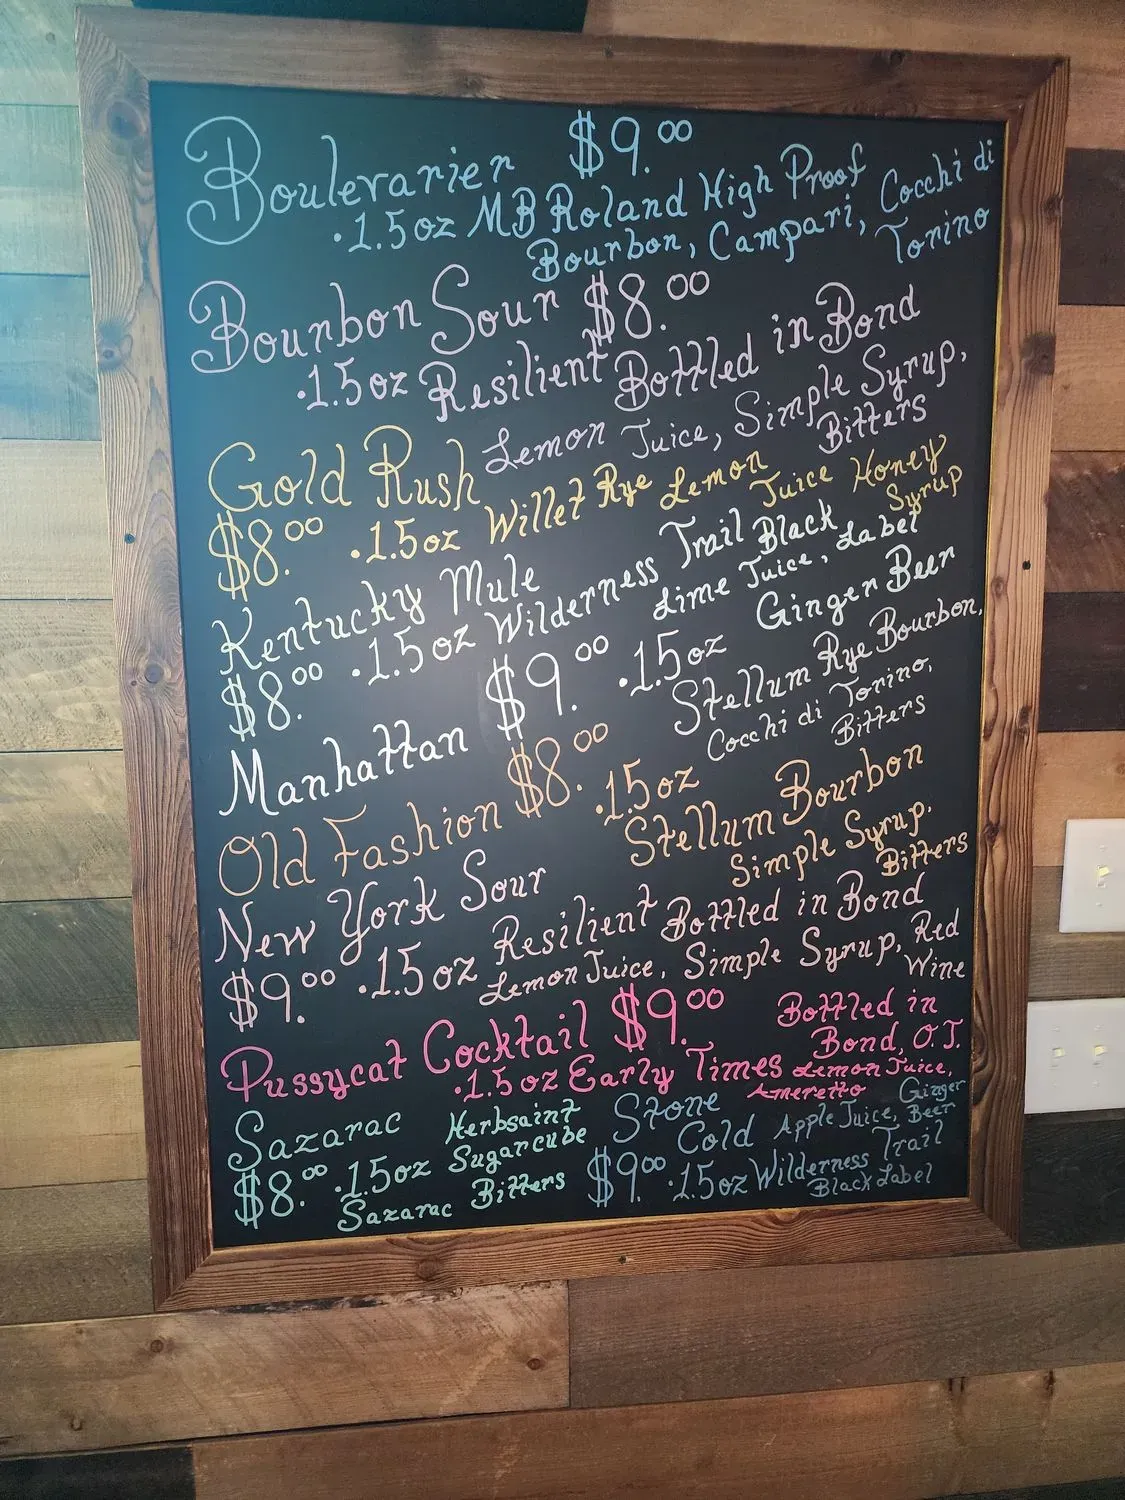 Boulevarier $9.00
.1.5oz MB Roland High Proof
Bourbon, Campari, Cocchi di
Torino
Bourbon Sour $8.00
.1.5oz Resilient Bottled in Bond
Lemon Juice, Simple Syrup,
Bitters
Gold Rush
$8.00 .1.5oz Willet Rye Lemon
Juice Honey
Syrup
Kentucky Mule
$8.00 .1.5oz Wilderness Trail Black
Lime Juice, Label
Ginger Beer
Manhattan $9.00 .1.5oz
Stellum Rye Bourbon,
Cocchi di Torino,
Bitters
Old Fashion $8.00 .1.5oz
Stellum Bourbon
Simple Syrup,
Bitters
New York Sour
$9.00 .1.5oz Resilient Bottled in Bond
Lemon Juice, Simple Syrup, Red
Wine
Pussycat Cocktail $9.00
.1.5oz Early Times
Bottled in
Bond, O.J.
Lemon Juice,
Ameretto
Sazarac
$8.00 .1.5oz
Herbsaint
Sugarcube
Sazarac Bitters
Stone
Cold Apple Juice, Ginger
Beer
$9.00 .1.5oz Wilderness Trail
Black Label